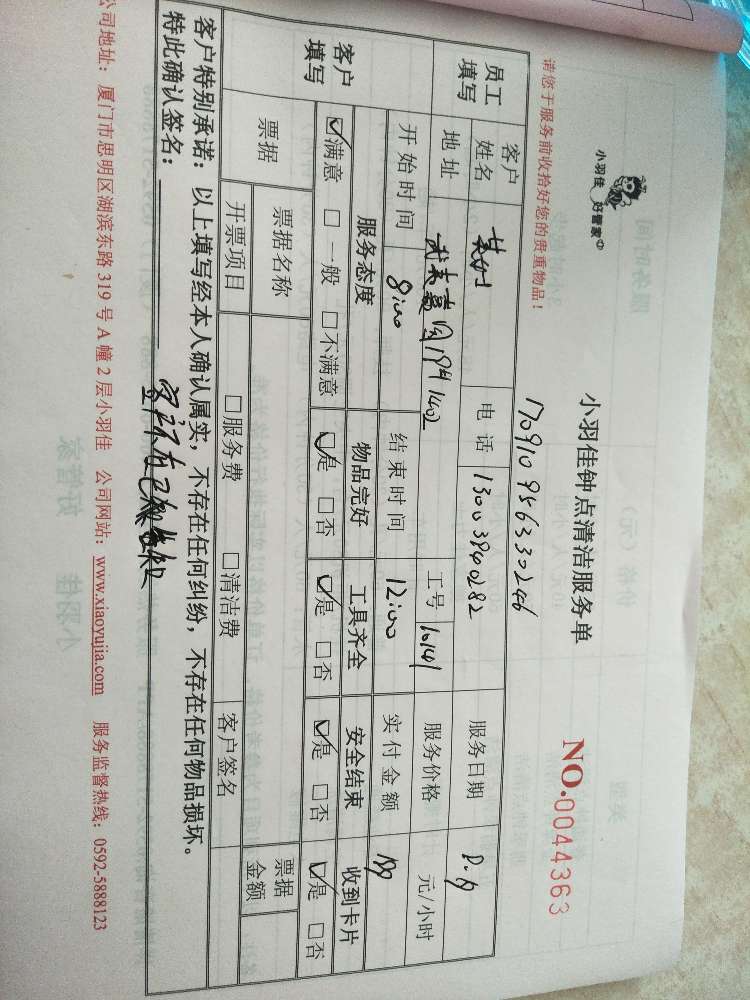 小羽佳 好管家
小羽佳钟点清洁服务单
NO.0044363
请您于服务前收拾好您的贵重物品！
170910956330246
员工填写 客户姓名 女士 电话 13003840282 服务日期
地址 1402 工号 10141 服务价格 元/小时
客户填写 开始时间 8:00 结束时间 12:00 实付金额
服务态度 物品完好 工具齐全 安全结束 收到卡片
☑满意 □一般 □不满意 ☑是 □否 ☑是 □否 ☑是 □否 ☑是 □否
票据 票据名称 票据金额
开票项目 □服务费 □清洁费 客户签名
客户特别承诺：以上填写经本人确认属实，不存在任何纠纷，不存在任何物品损坏。
特此确认签名：
公司地址：厦门市思明区湖滨东路319号A幢2层小羽佳 公司网站：www.xiaoyujia.com 服务监督热线：0592-5888123